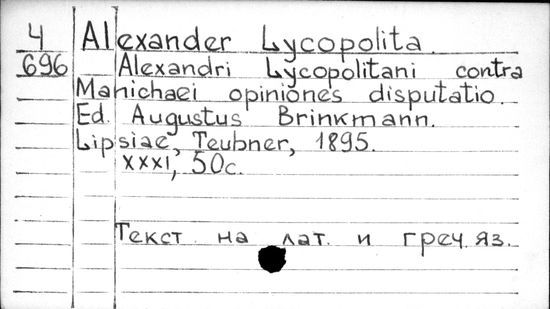 4 Alexander Lycopolita
696 Alexandri Lycopolitani contra
Manichaei opiniones disputatio.
Ed. Augustus Brinkmann.
Lipsiae, Teubner, 1895.
XXXI, 50c.
Текст на лат. и греч. яз.